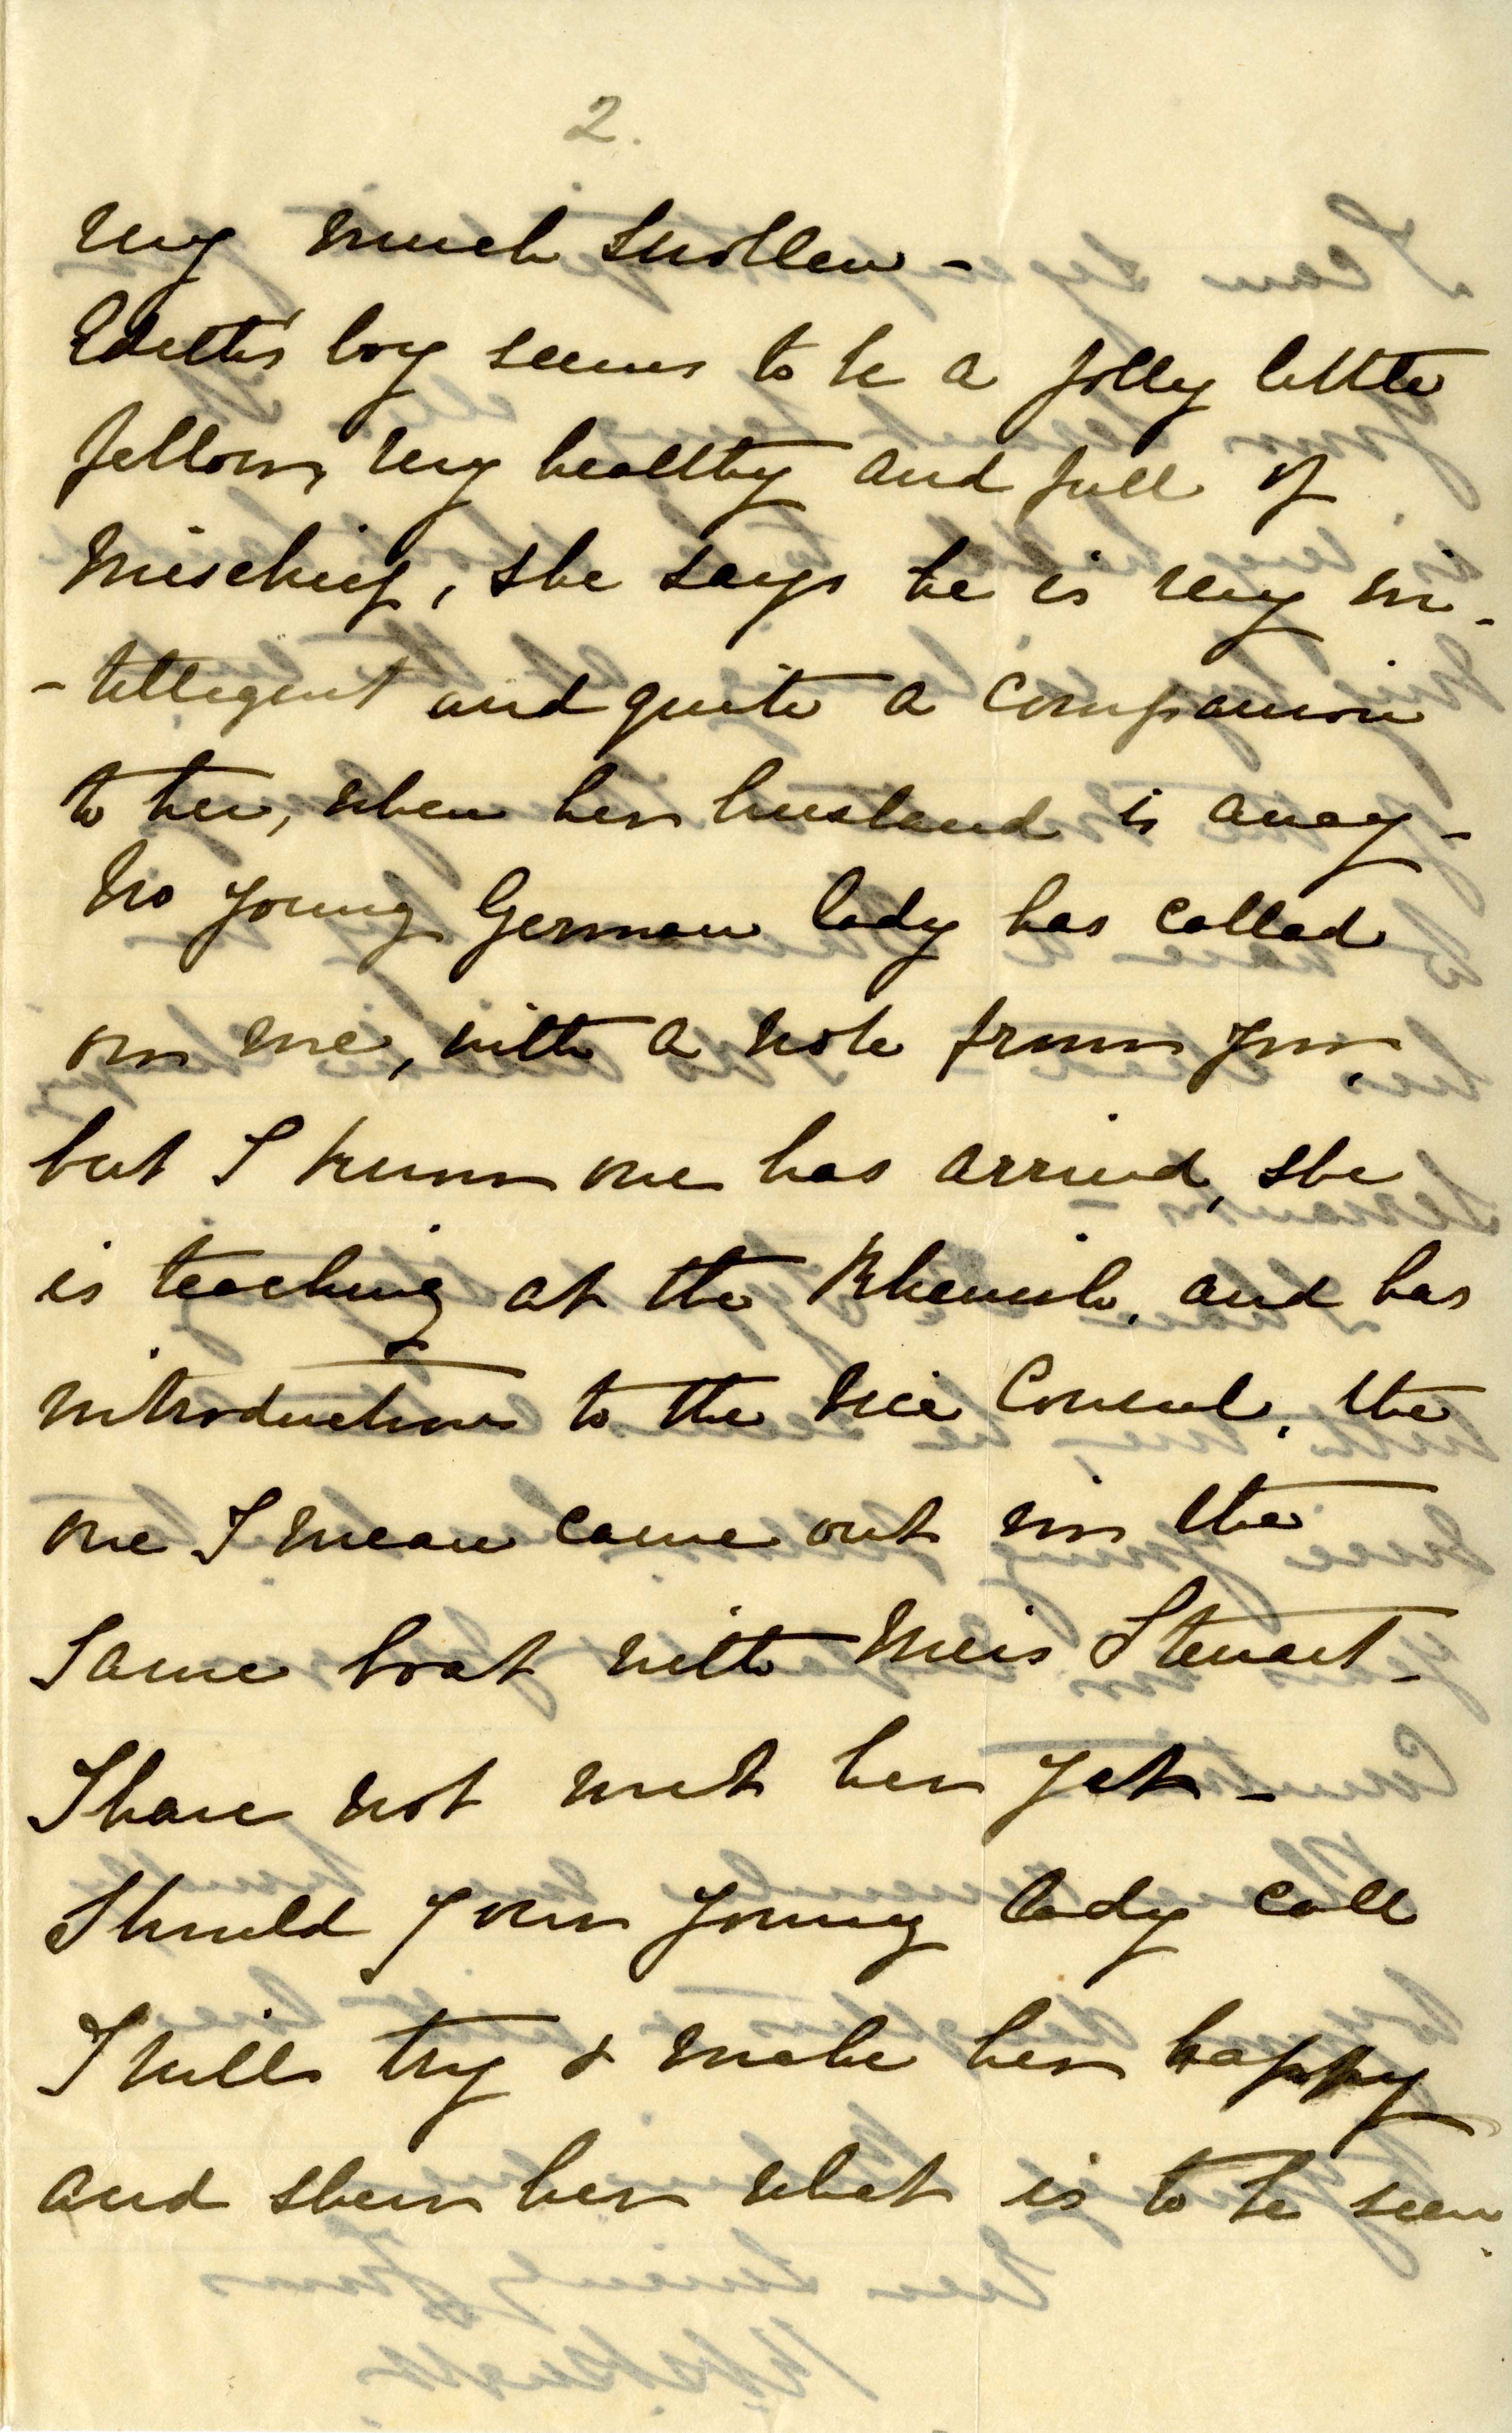 2.
very much swollen -
Edith's boy seems to be a jolly little
fellow, very healthy and full of
mischief, she says he is very in-
-telligent and quite a companion
to her, when her husband is away -
No young German lady has called
on me, with a note from you,
but I know one has arrived, she
is teaching at the Rhenish, and has
introductions to the Vice Consul, the
one I mean came out in the
same boat with Miss Stewart -
I have not met her yet -
Should your young lady call
I will try & make her happy
and shew her what is to be seen.